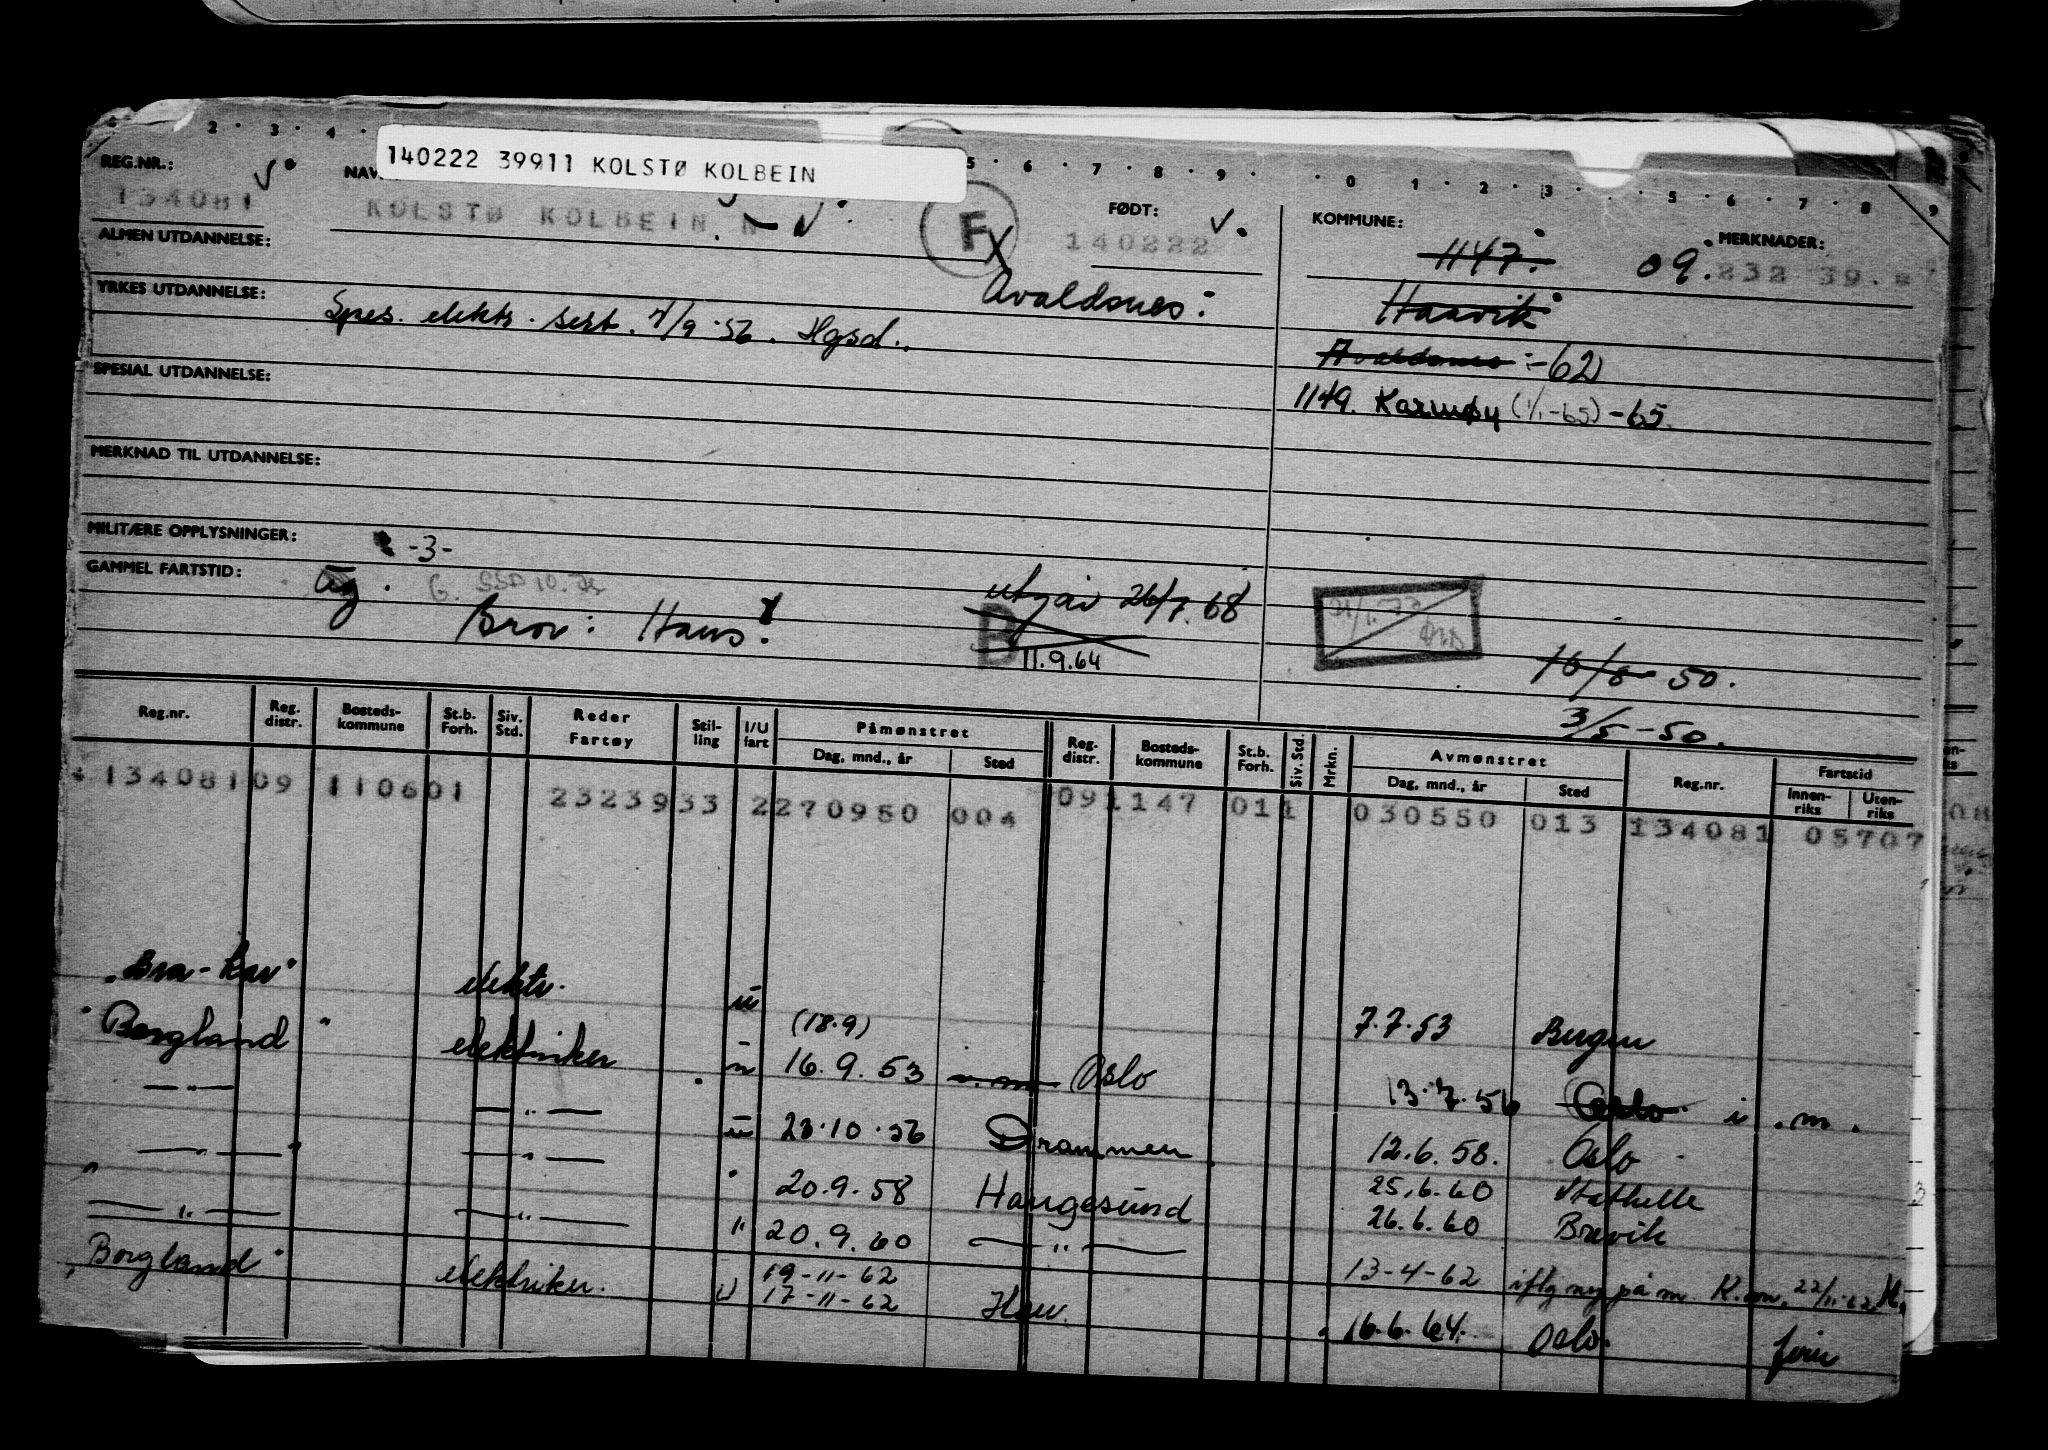 140222 39911 KOLSTØ KOLBEIN
REG.NR.: 134081
KOLSTØ KOLBEIN N
F
FØDT: 140222
KOMMUNE: 1147.
09.
MERKNADER: 232 39.
ALMEN UTDANNELSE:
Avaldsnes:
Haavik
YRKES UTDANNELSE: Spes. elektr. sert. 7/9-56. Hgsd.
Avaldsnes :-62
SPESIAL UTDANNELSE:
1149. Karmøy (1/1-65) -65.
MERKNAD TIL UTDANNELSE:
MILITÆRE OPPLYSNINGER: -3-
GAMMEL FARTSTID:
Bror: Hans.
utgår 26/7.68
B
11.9.64
50.
3/5-50.
Reg.nr. Reg. distr. Bosteds-kommune St.b. Forh. Siv. Std. Reder Fartøy Stil-ling I/U fart Påmønstret Reg. distr. Bosteds-kommune St.b. Forh. Siv. Std. Mrkn. Avmønstret Reg.nr. Fartstid
Dag, mnd., år Sted Dag, mnd., år Sted Innen-riks Uten-riks
134081 09 1106 01 23239 33 2 270950 004 09 1147 01 1 030550 013 134081 05707
"Bra-Kar" elektr. u 7.7.53 Bergen
(18.9)
"Borgland" elektriker u 16.9.53 Oslo 13.7.56 Oslo i.m.
— " — — " — u 23.10.56 Drammen 12.6.58. Oslo
— " — — " — " 20.9.58 Haugesund 25.6.60 Stathelle
26.6.60 Brevik
— " — — " — " 20.9.60 — " — 13-4-62 iflg ny på m. K.m. 22/11-62 H.
19-11-62
"Borgland" elektriker. u 17-11-62 Hau. 16.6.64. Oslo. ferie